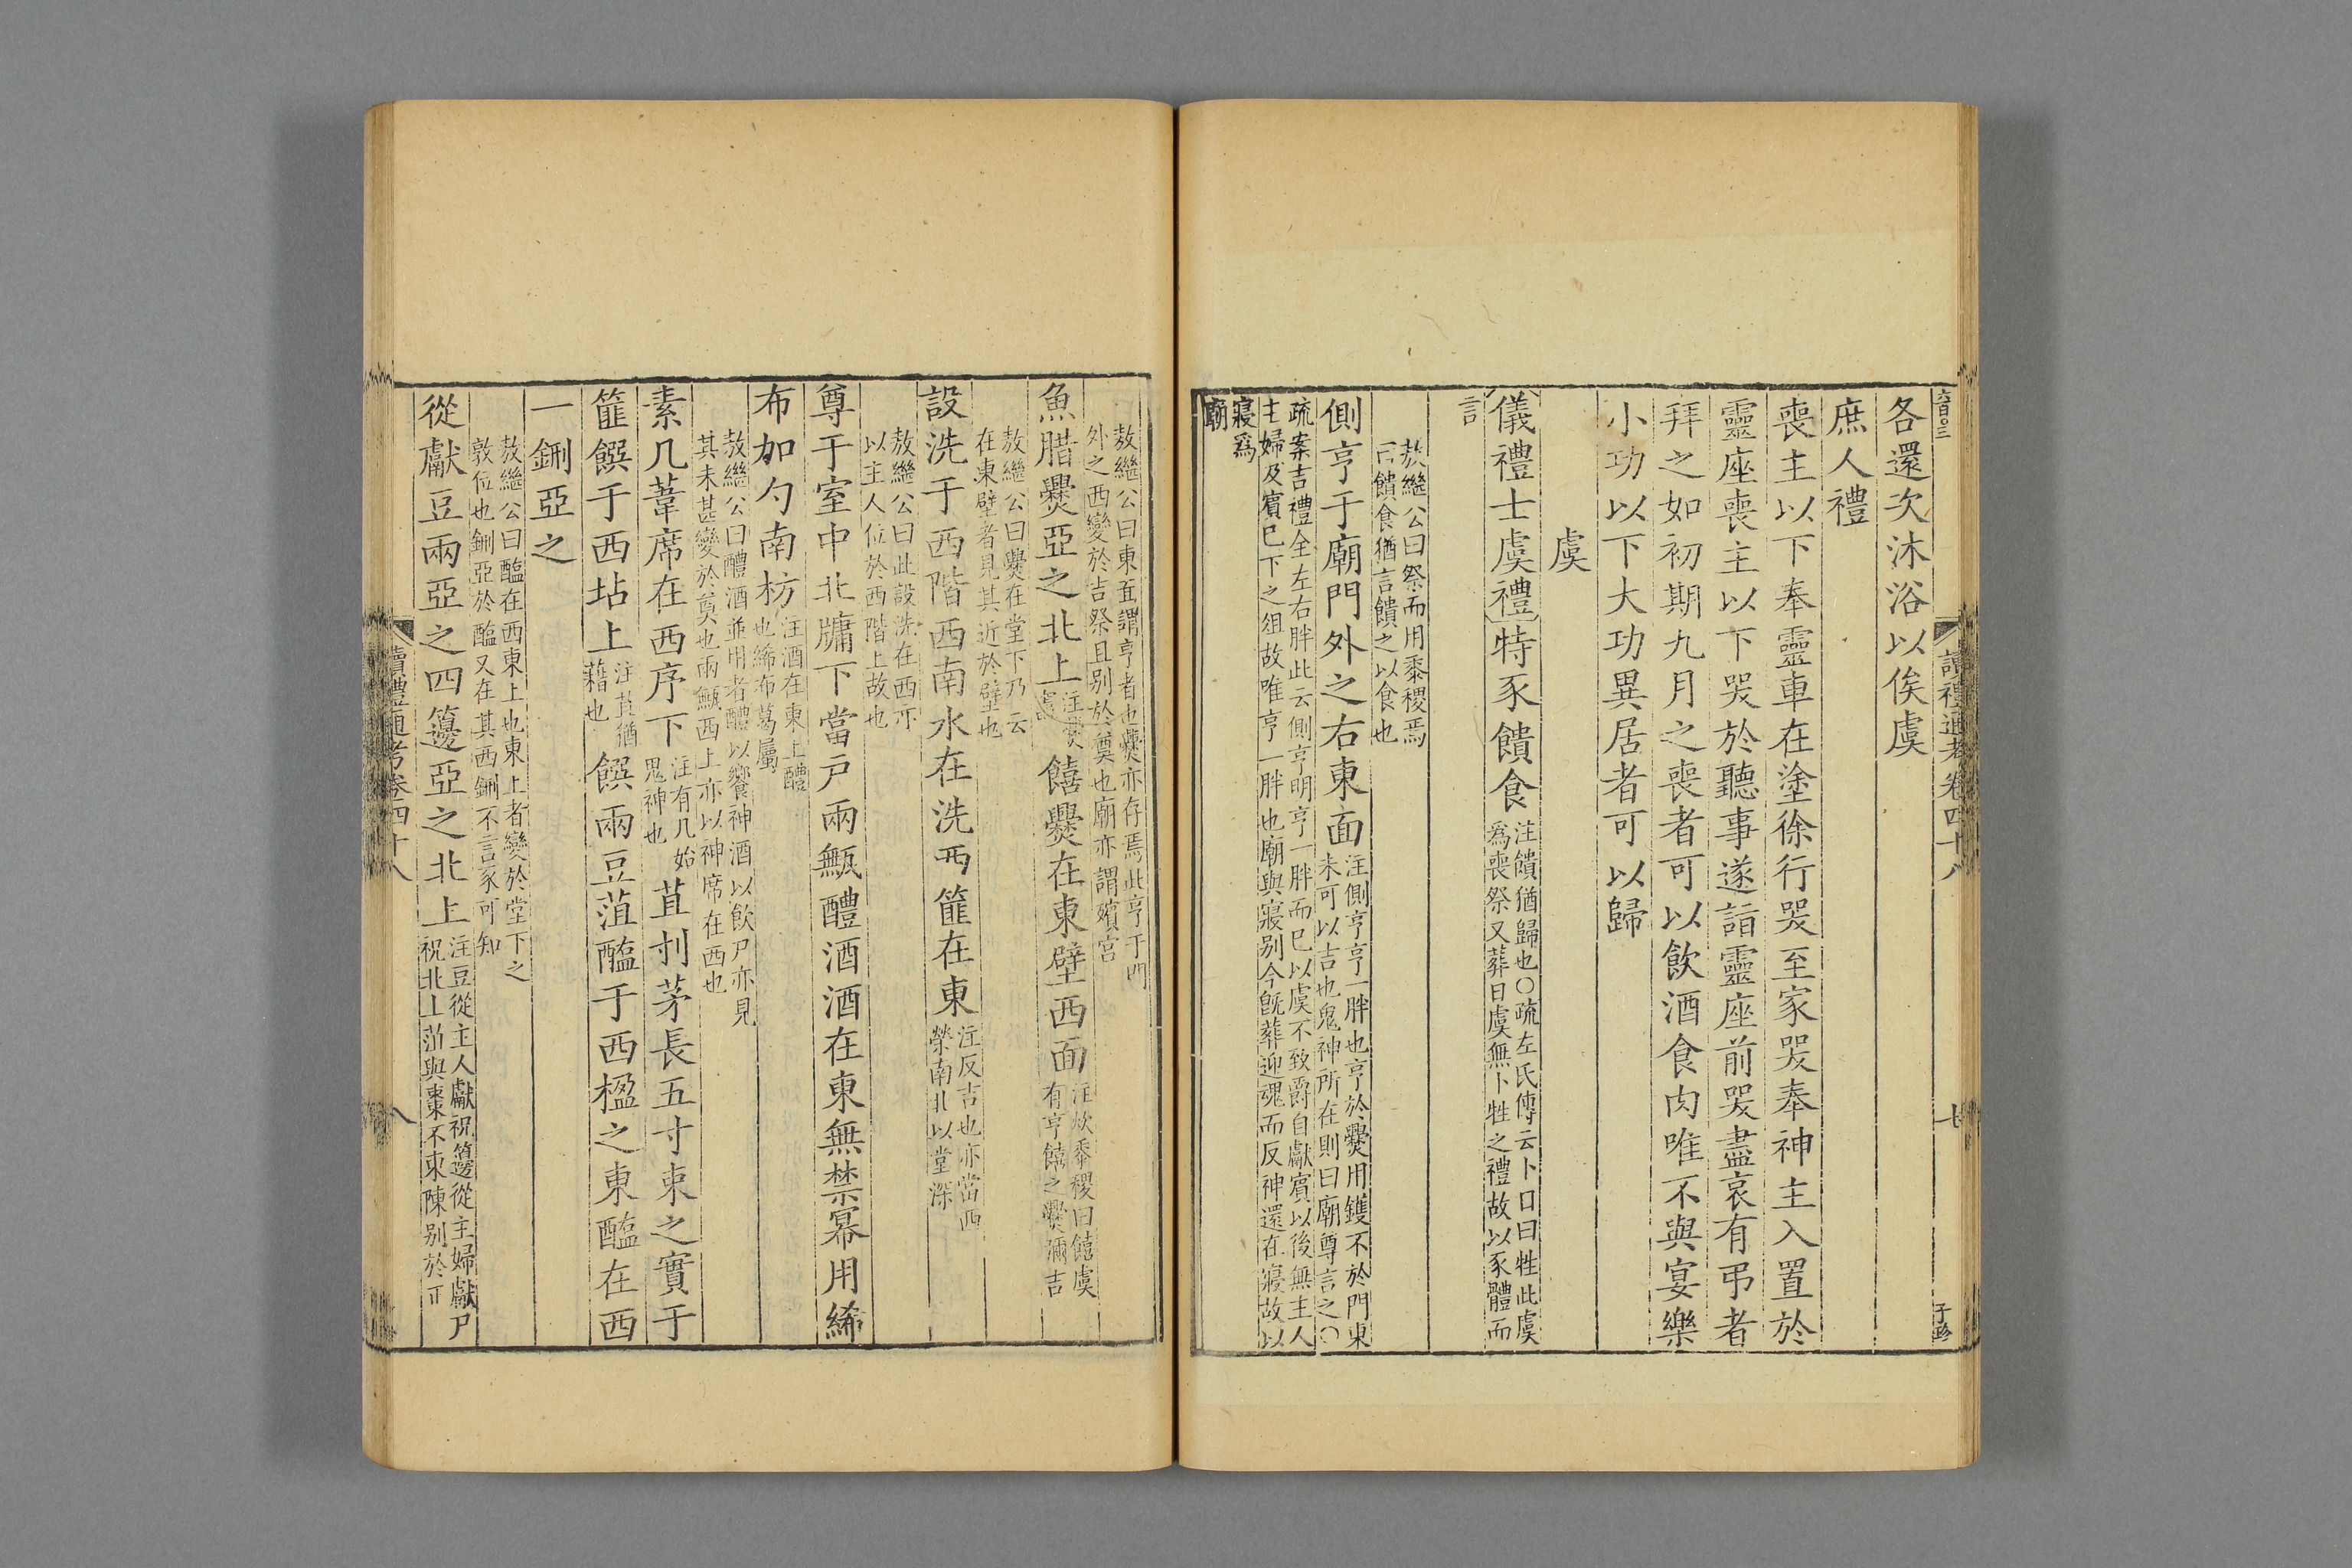 各還次沐浴以俟虞
庶人禮
喪主以下奉靈車在塗徐行哭至家哭奉神主入置於
靈座喪主以下哭於聽事遂詣靈座前哭盡哀有弔者
拜之如初期九月之喪者可以飲酒食肉唯不與宴樂
小功以下大功異居者可以歸
虞
儀禮士虞禮特豕饋食
注饋猶歸也○疏左氏傳云卜日曰牲此虞
為喪祭又葬日虞無卜牲之禮故以豕體而
言
敖繼公曰祭而用黍稷焉
曰饋食猶言饋之以食也
側亨于廟門外之右東面
注側亨亨一胖也亨於爨用鑊不於門東
未可以吉也鬼神所在則曰廟尊言之○
疏案吉禮全左右胖此云側亨明亨一胖而已以虞不致爵自獻賓以後無主人
主婦及賓已下之俎故唯亨一胖也廟與寢别今既葬迎魂而反神還在寢故以
寢爲
廟
讀禮通考卷四十八
七
敖繼公曰東面謂亨者也爨亦存焉此亨于門
外之西變於吉祭且别於奠也廟亦謂殯宮
魚腊爨亞之北上
注爨
饎爨在東壁西面
注炊黍稷曰饎虞
有亨饎之爨彌吉
敖繼公曰爨在堂下乃云
在東壁者見其近於壁也
設洗于西階西南水在洗西篚在東
注反吉也亦當西
榮南北以堂深
敖繼公曰此設洗在西亦
以主人位於西階上故也
尊于室中北牖下當戶兩甒醴酒酒在東無禁冪用絺
布加勺南枋
注酒在東上醴
也絺布葛屬
敖繼公曰醴酒並用者醴以饗神酒以飲尸亦見
其未甚變於奠也兩甒西上亦以神席在西也
素几葦席在西序下
注有几始
鬼神也
苴刌茅長五寸束之實于
篚饌于西坫上
注苴猶
藉也
饌兩豆菹醢于西楹之東醢在西
一鉶亞之
敖繼公曰醢在西東上也東上者變於堂下之
敦位也鉶亞於醢又在其西鉶不言豕可知
從獻豆兩亞之四籩亞之北上
注豆從主人獻祝籩從主婦獻尸
祝北上菹與棗不東陳别於正
讀禮通考卷四十八
八